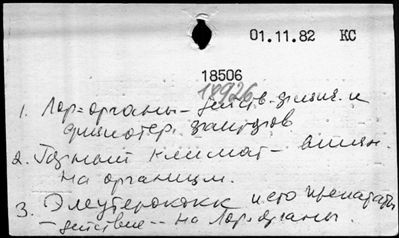 01.11.82 КС
18506
18926
1. Лор-органы – действ. физич. и
физиотер. факторов
2. Горный климат – влиян.
на организм.
3. Элеутерококк и его препараты
– действие – на Лор-органы.